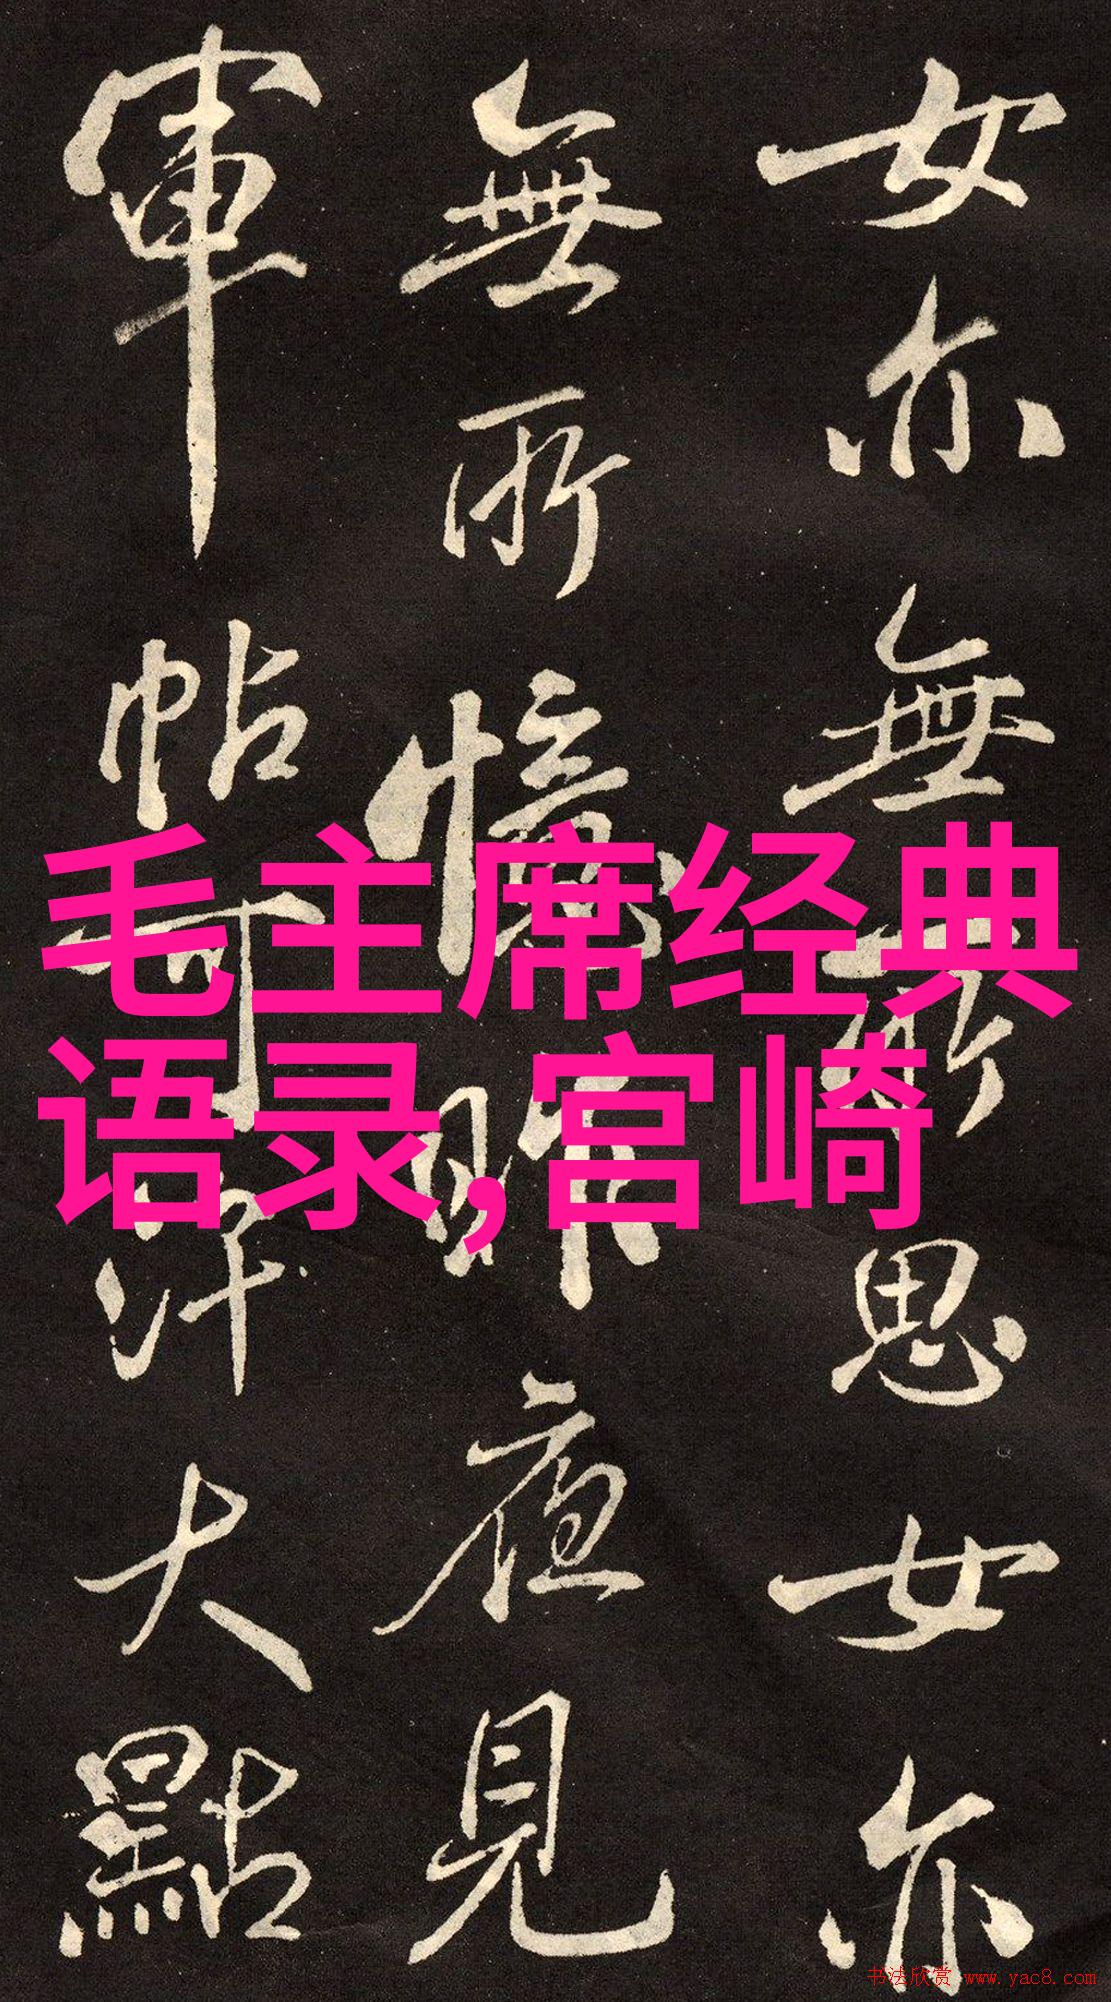 女亦無所思女亦
無所憶昨夜見
軍帖可汗大點
毛主席经典
语录,宫崎
书法欣赏 www.yac8.com